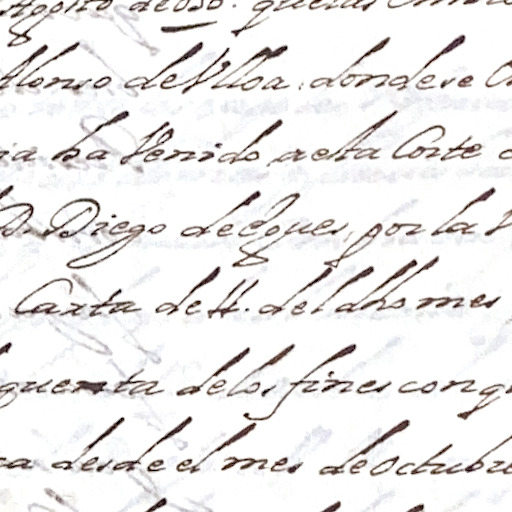 Agosto de 686. que las
Alonso de Vlloa. donde se
ia ha Venido a esta Corte
D. Diego de Egues, por la
Carta de 11. del dho mes
quenta de los fines con q
ca desde el mes de Octubre